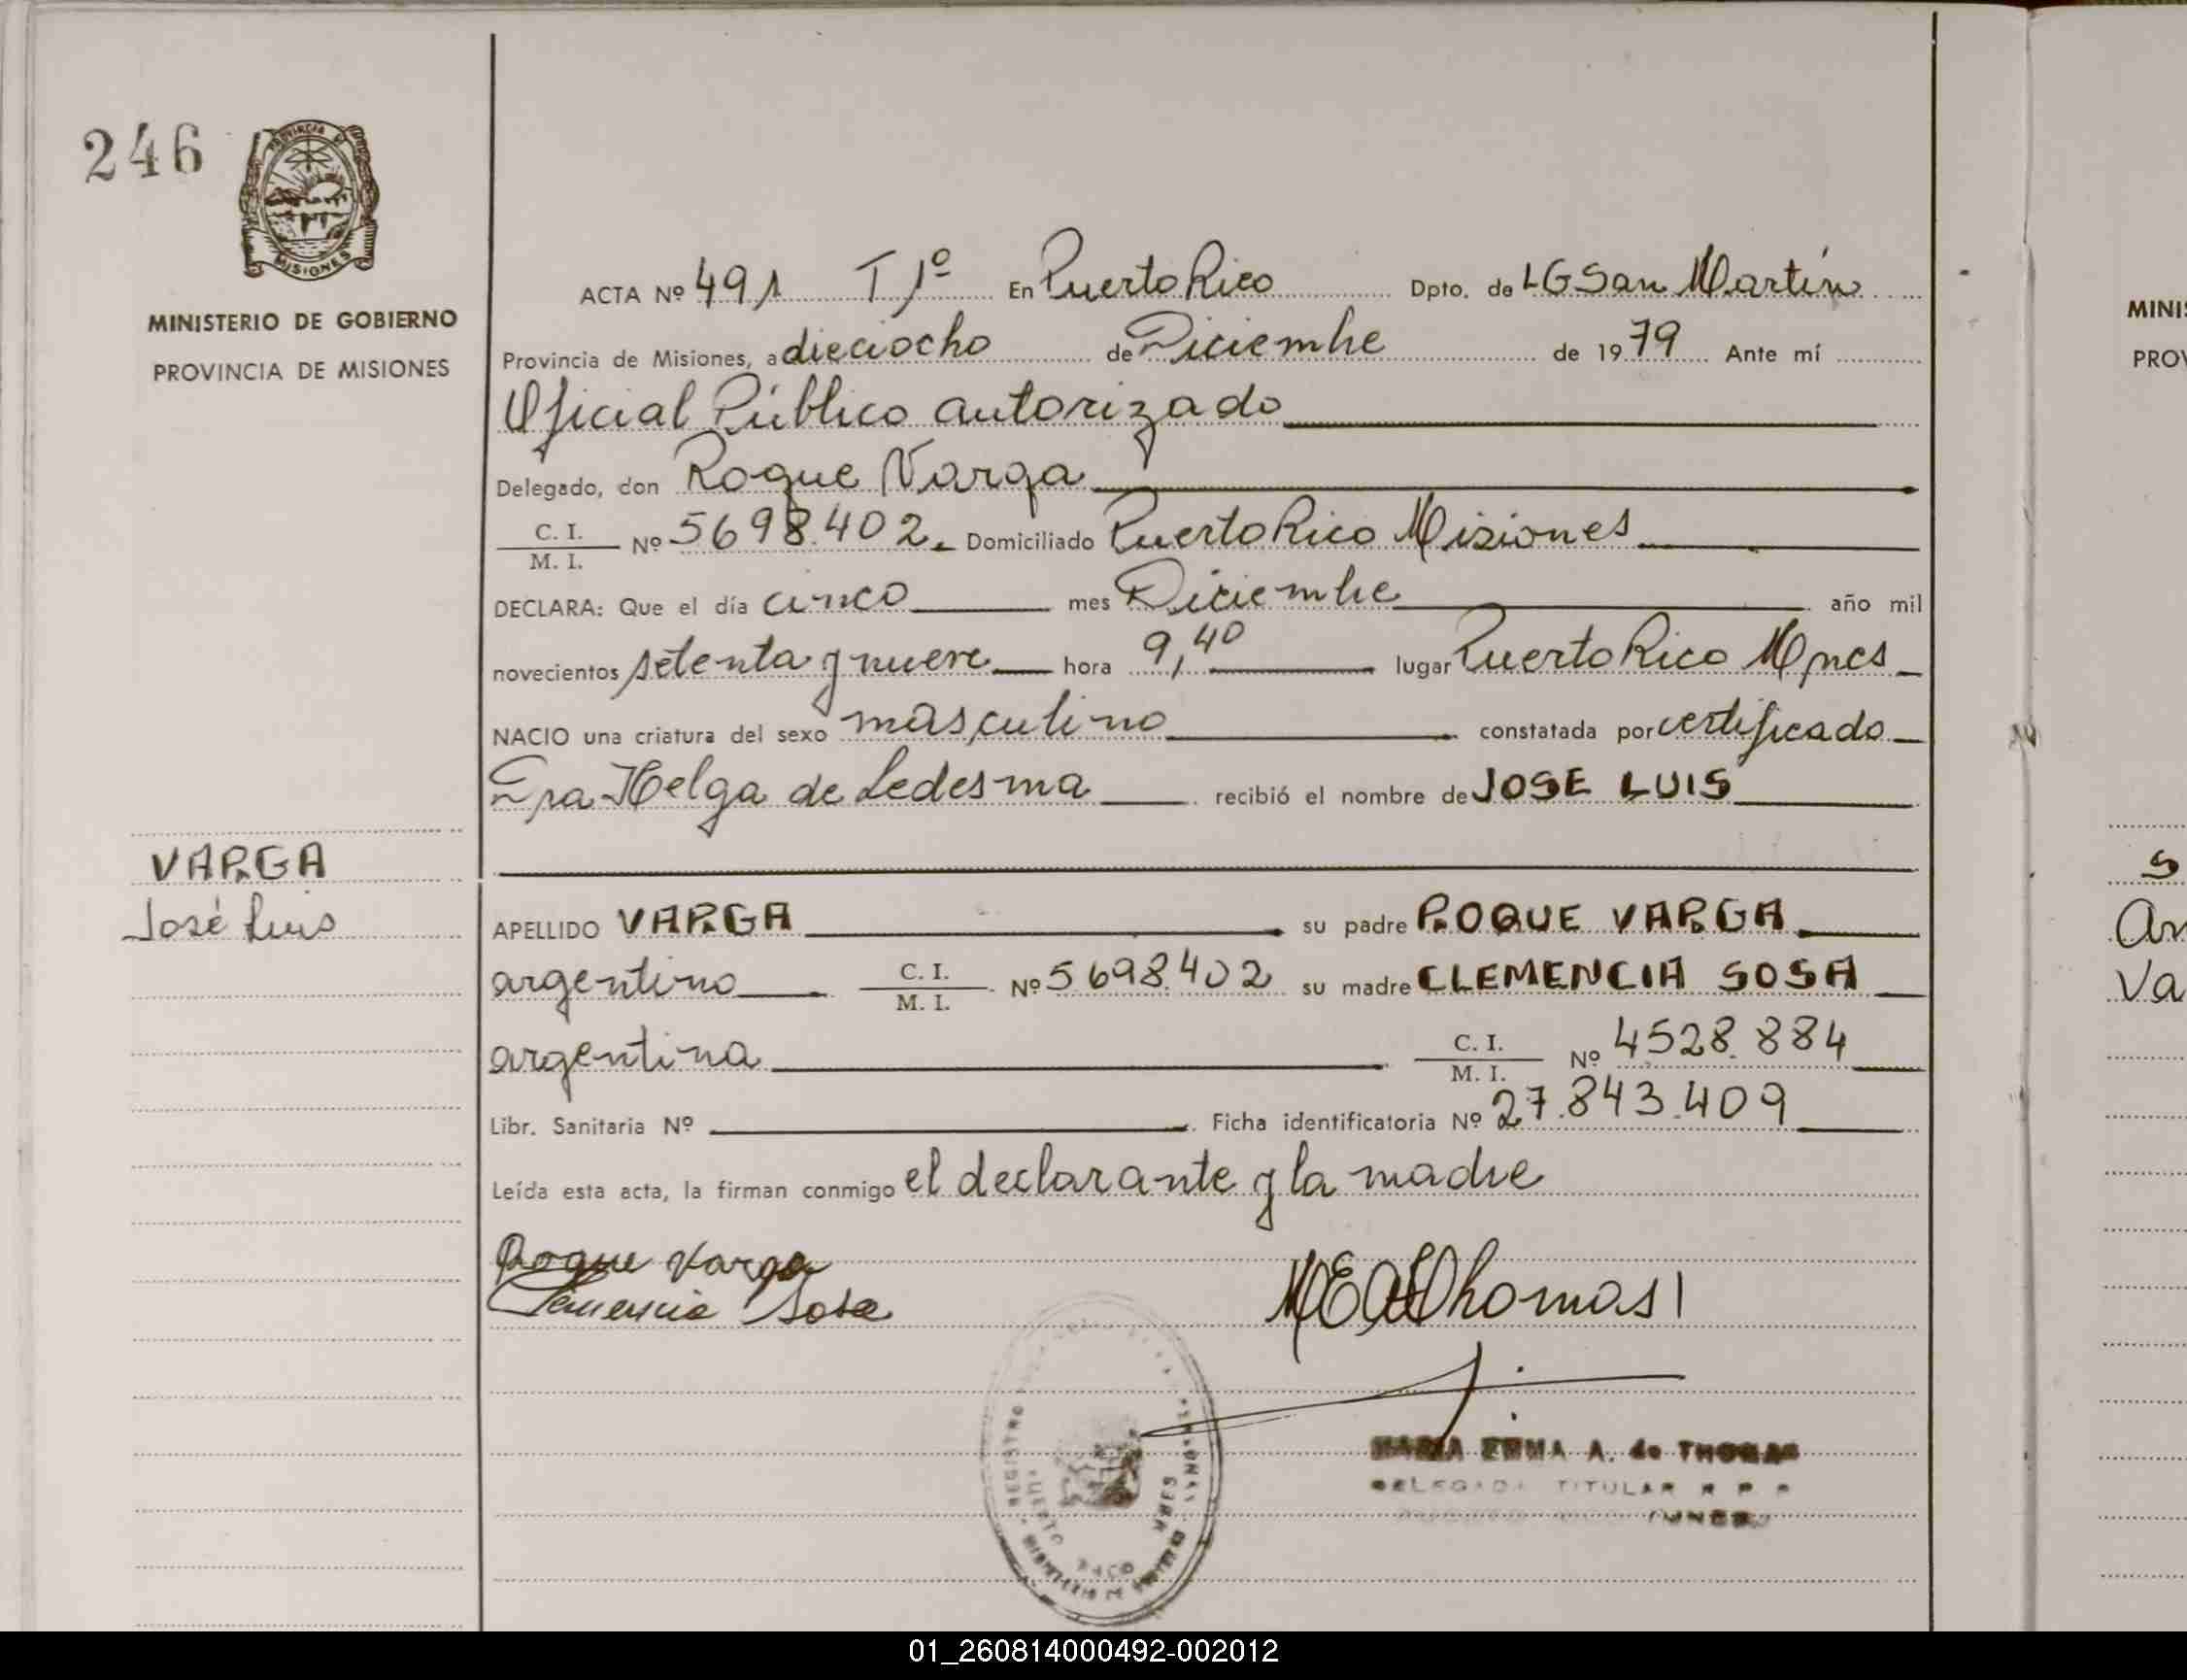 246
PROVINCIA DE
MISIONES
MINISTERIO DE GOBIERNO
PROVINCIA DE MISIONES
VARGA
José Luis
ACTA Nº 491 T 1º En Puerto Rico Dpto. de LG San Martín
Provincia de Misiones, a dieciocho de Diciembre de 1979 Ante mí
Oficial Público autorizado
Delegado, don Roque Varga
C. I.
M. I. Nº 5698.402. Domiciliado Puerto Rico Misiones
DECLARA: Que el día cinco mes Diciembre año mil
novecientos setenta y nueve hora 9,40 lugar Puerto Rico Mnes
NACIO una criatura del sexo masculino constatada por certificado
Sra Helga de Ledesma recibió el nombre de JOSE LUIS
APELLIDO VARGA su padre ROQUE VARGA
argentino C. I. M. I. Nº 5698.402 su madre CLEMENCIA SOSA
argentina C. I. M. I. Nº 4528.884
Libr. Sanitaria Nº Ficha identificatoria Nº 27.843.409
Leída esta acta, la firman conmigo el declarante y la madre
Roque Varga
Clemencia Sosa
Thomas
MARIA ERMA A. de THOMAS
DELEGADA TITULAR R P P
REGISTRO
MINI
PRO
S
An
Va
01_260814000492-002012